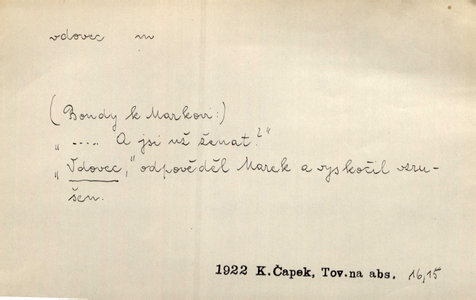 vdovec m
(Bondy k Markovi:)
„ ..... A jsi už ženat?"
„Vdovec," odpověděl Marek a vyskočil vzru-
šen.
1922 K.Čapek, Tov.na abs. 16,15